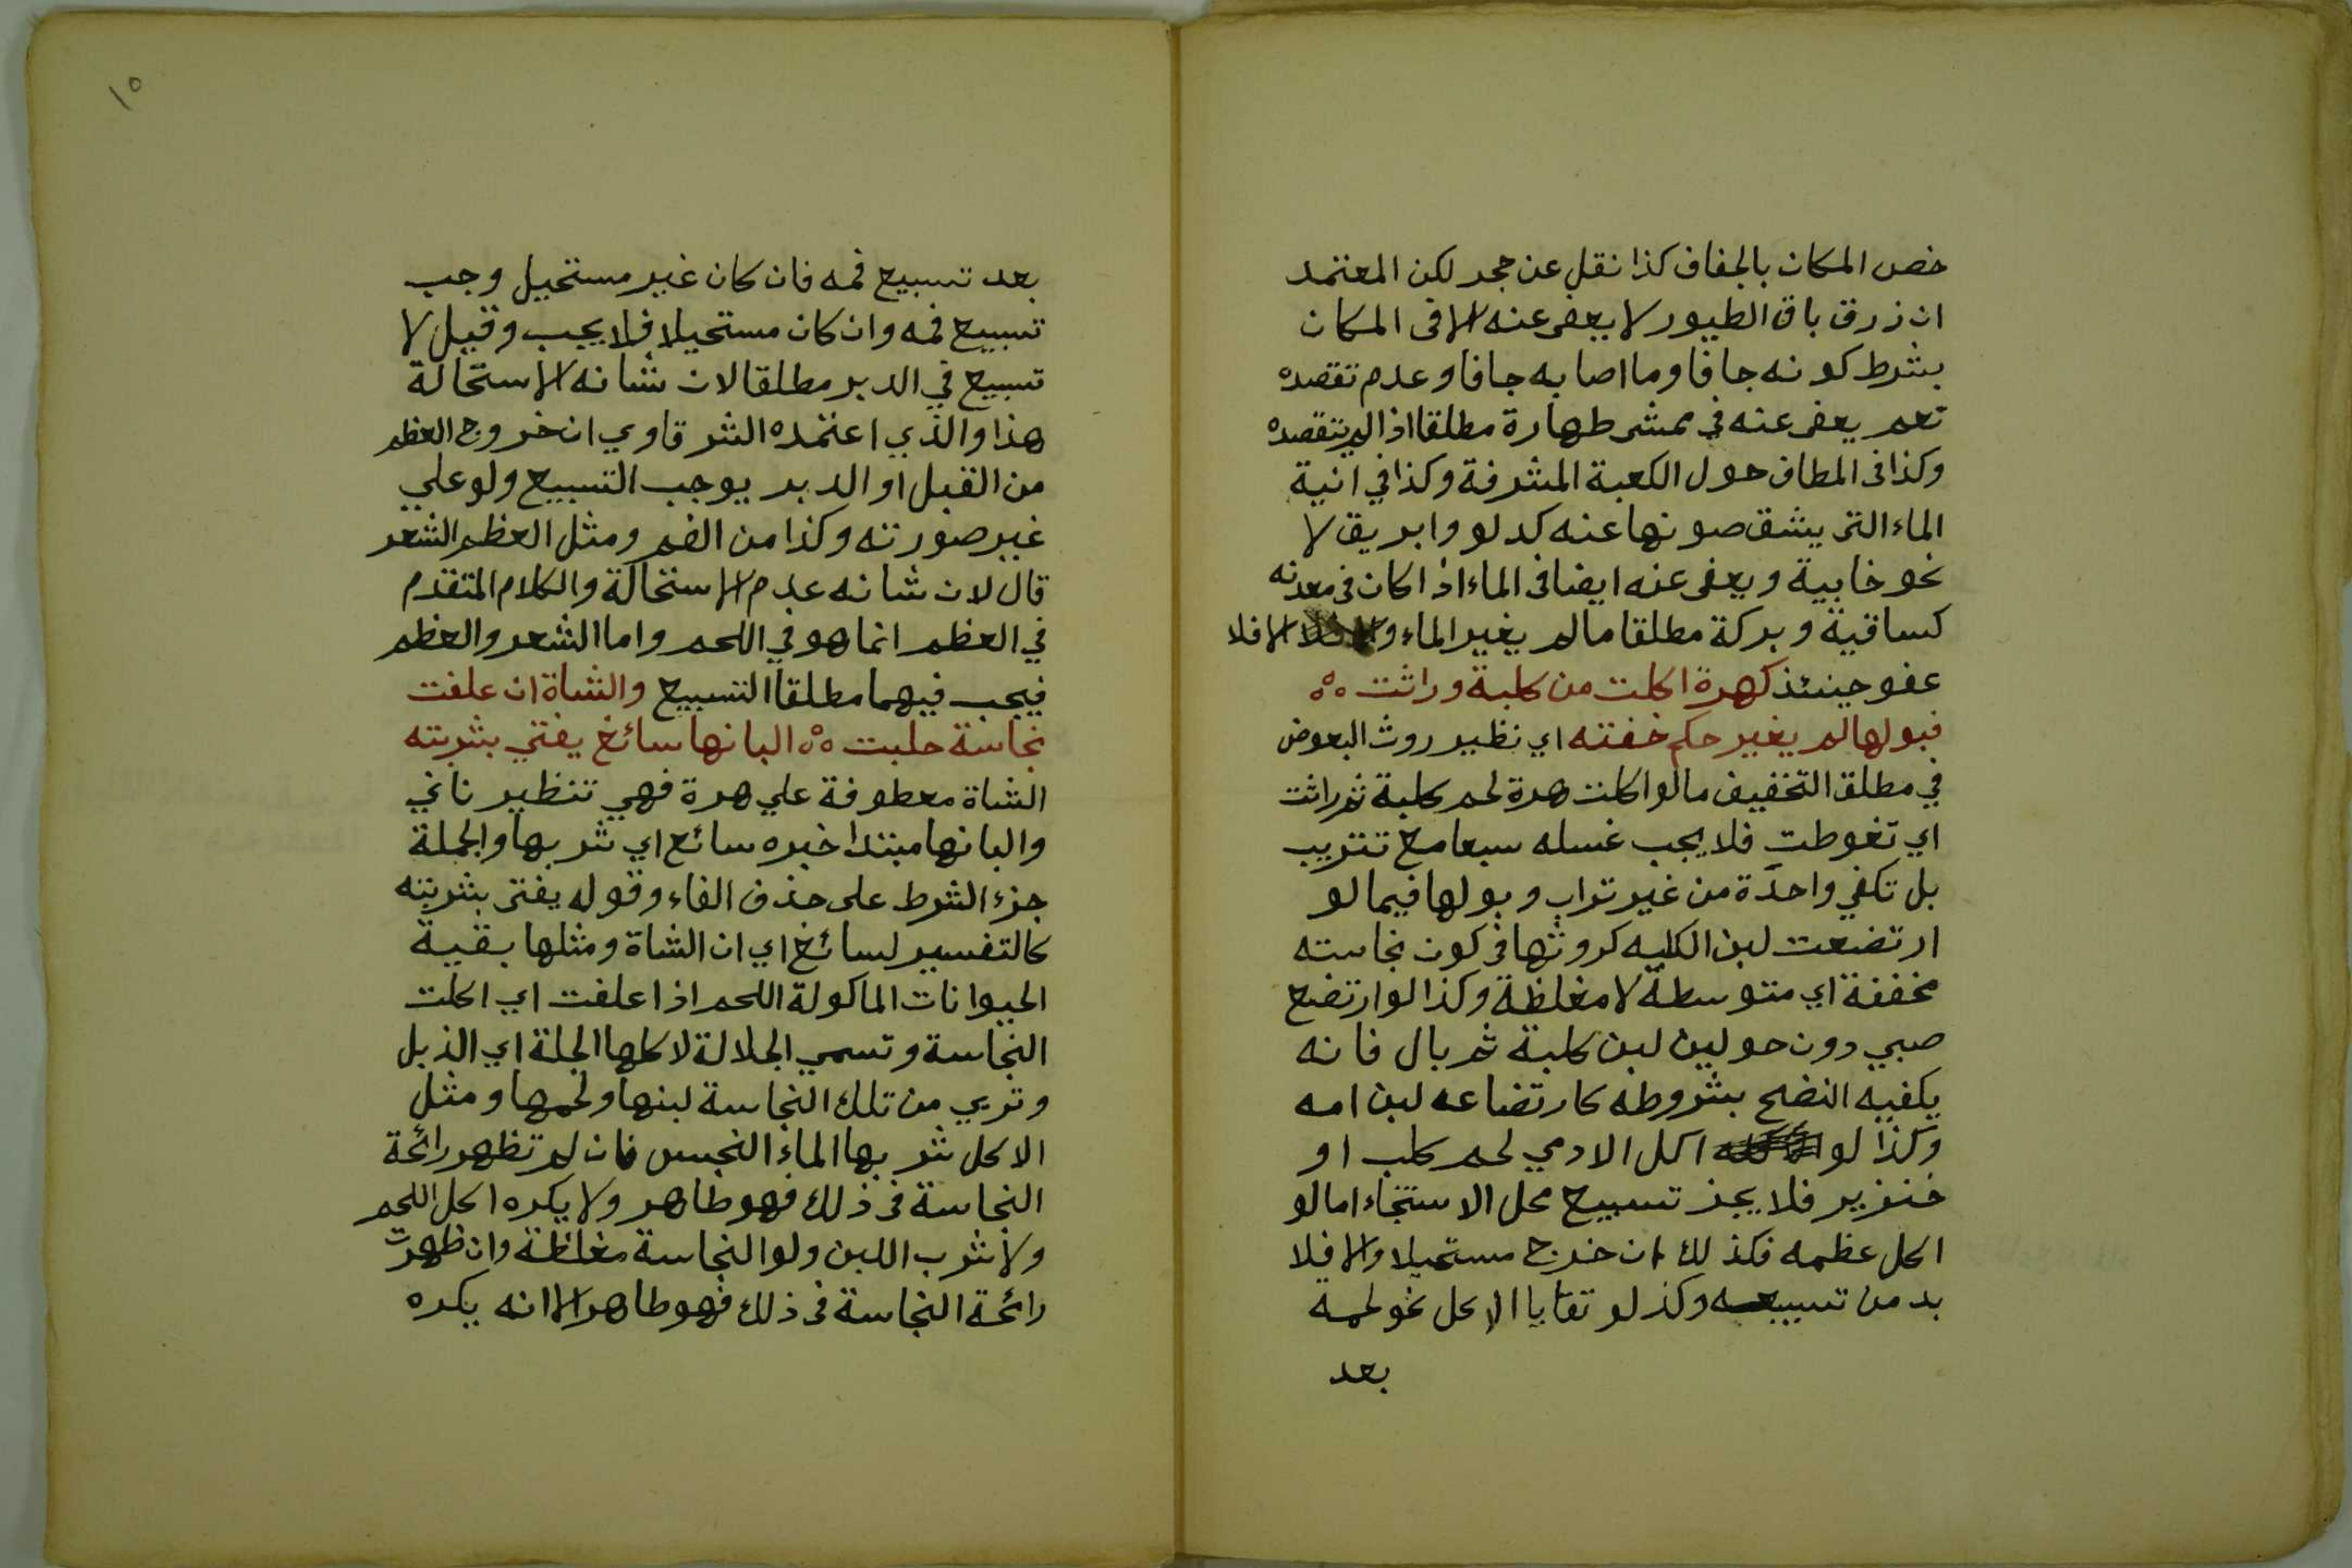 خص المكان بالجفاف كذا نقل عن حجر لكن المعتمد
ان ذرق باق الطيور لا يعفى عنه الا فى المكان
بشرط كونه جافا وما اصابه جافا وعدم تقصده
نعم يعفى عنه في ممشى طهارة مطلقا اذا لم يتقصده
وكذا فى المطاف حول الكعبة المشرفة وكذا في انية
الماء التى يشق صونها عنه كدلو وابريق لا
نحو خابية ويعفى عنه ايضا فى الماء اذا كان فى معدنه
كساقية وبركة مطلقا ما لم يغير الماء والا فلا
عفو حينئذ كهرة اكلت من كلبة وراثت ٥٥
فبولها لم يغير حكم خفته اي نظير روث البعوض
في مطلق التخفيف ما لو اكلت هرة لحم كلبة ثم راثت
اي تغوطت فلا يجب غسله سبعا مع تتريب
بل تكفي واحدة من غير تراب وبولها فيما لو
ارتضعت لبن الكلبه كروثها فى كون نجاسته
مخففة اي متوسطة لا مغلظة وكذا لو ارتضع
صبي دون حولين لبن كلبة ثم بال فانه
يكفيه النضح بشروطه كارتضاعه لبن امه
وكذا لو اكل الادمي لحم كلب او
خنزير فلا يجز تسبيع محل الاستنجاء اما لو
اكل عظمه فكذلك ان خرج مستحيلا والا فلا
بد من تسبيعه وكذ لو تقايا الاكل نحو لحمه
بعد
١٥
بعد تسبيع فمه فان كان غير مستحيل وجب
تسبيع فمه وان كان مستحيلا فلا يجب وقيل لا
تسبيع في الدبر مطلقا لان شانه الاستحالة
هذا والذي اعتمده الشرقاوي ان خروج العظم
من القبل او الدبر يوجب التسبيع ولو علي
غير صورته وكذا من الفم ومثل العظم الشعر
قال لان شانه عدم الاستحالة والكلام المتقدم
في العظم انما هو في اللحم واما الشعر والعظم
فيجب فيهما مطلقا التسبيع والشاة ان علفت
نجاسة حلبت ٥٥ البانها سائغ يفتي بشربته
الشاة معطوفة علي هرة فهي تنظير ثاني
والبانها مبتدا خبره سائغ اي شربها والجملة
جزء الشرط على حذف الفاء وقوله يفتى بشربته
كالتفسير لسائغ اي ان الشاة ومثلها بقية
الحيوانات الماكولة اللحم اذا علفت اي اكلت
النجاسة وتسمي الجلالة لاكلها الجلة اي الذبل
وتربي من تلك النجاسة لبنها ولحمها ومثل
الاكل شربها الماء النجس فان لم تظهر رائحة
النجاسة فى ذلك فهو طاهر ولا يكره اكل اللحم
ولا شرب اللبن ولو النجاسة مغلظة وان ظهرت
رائحة النجاسة فى ذلك فهو طاهر الا انه يكره